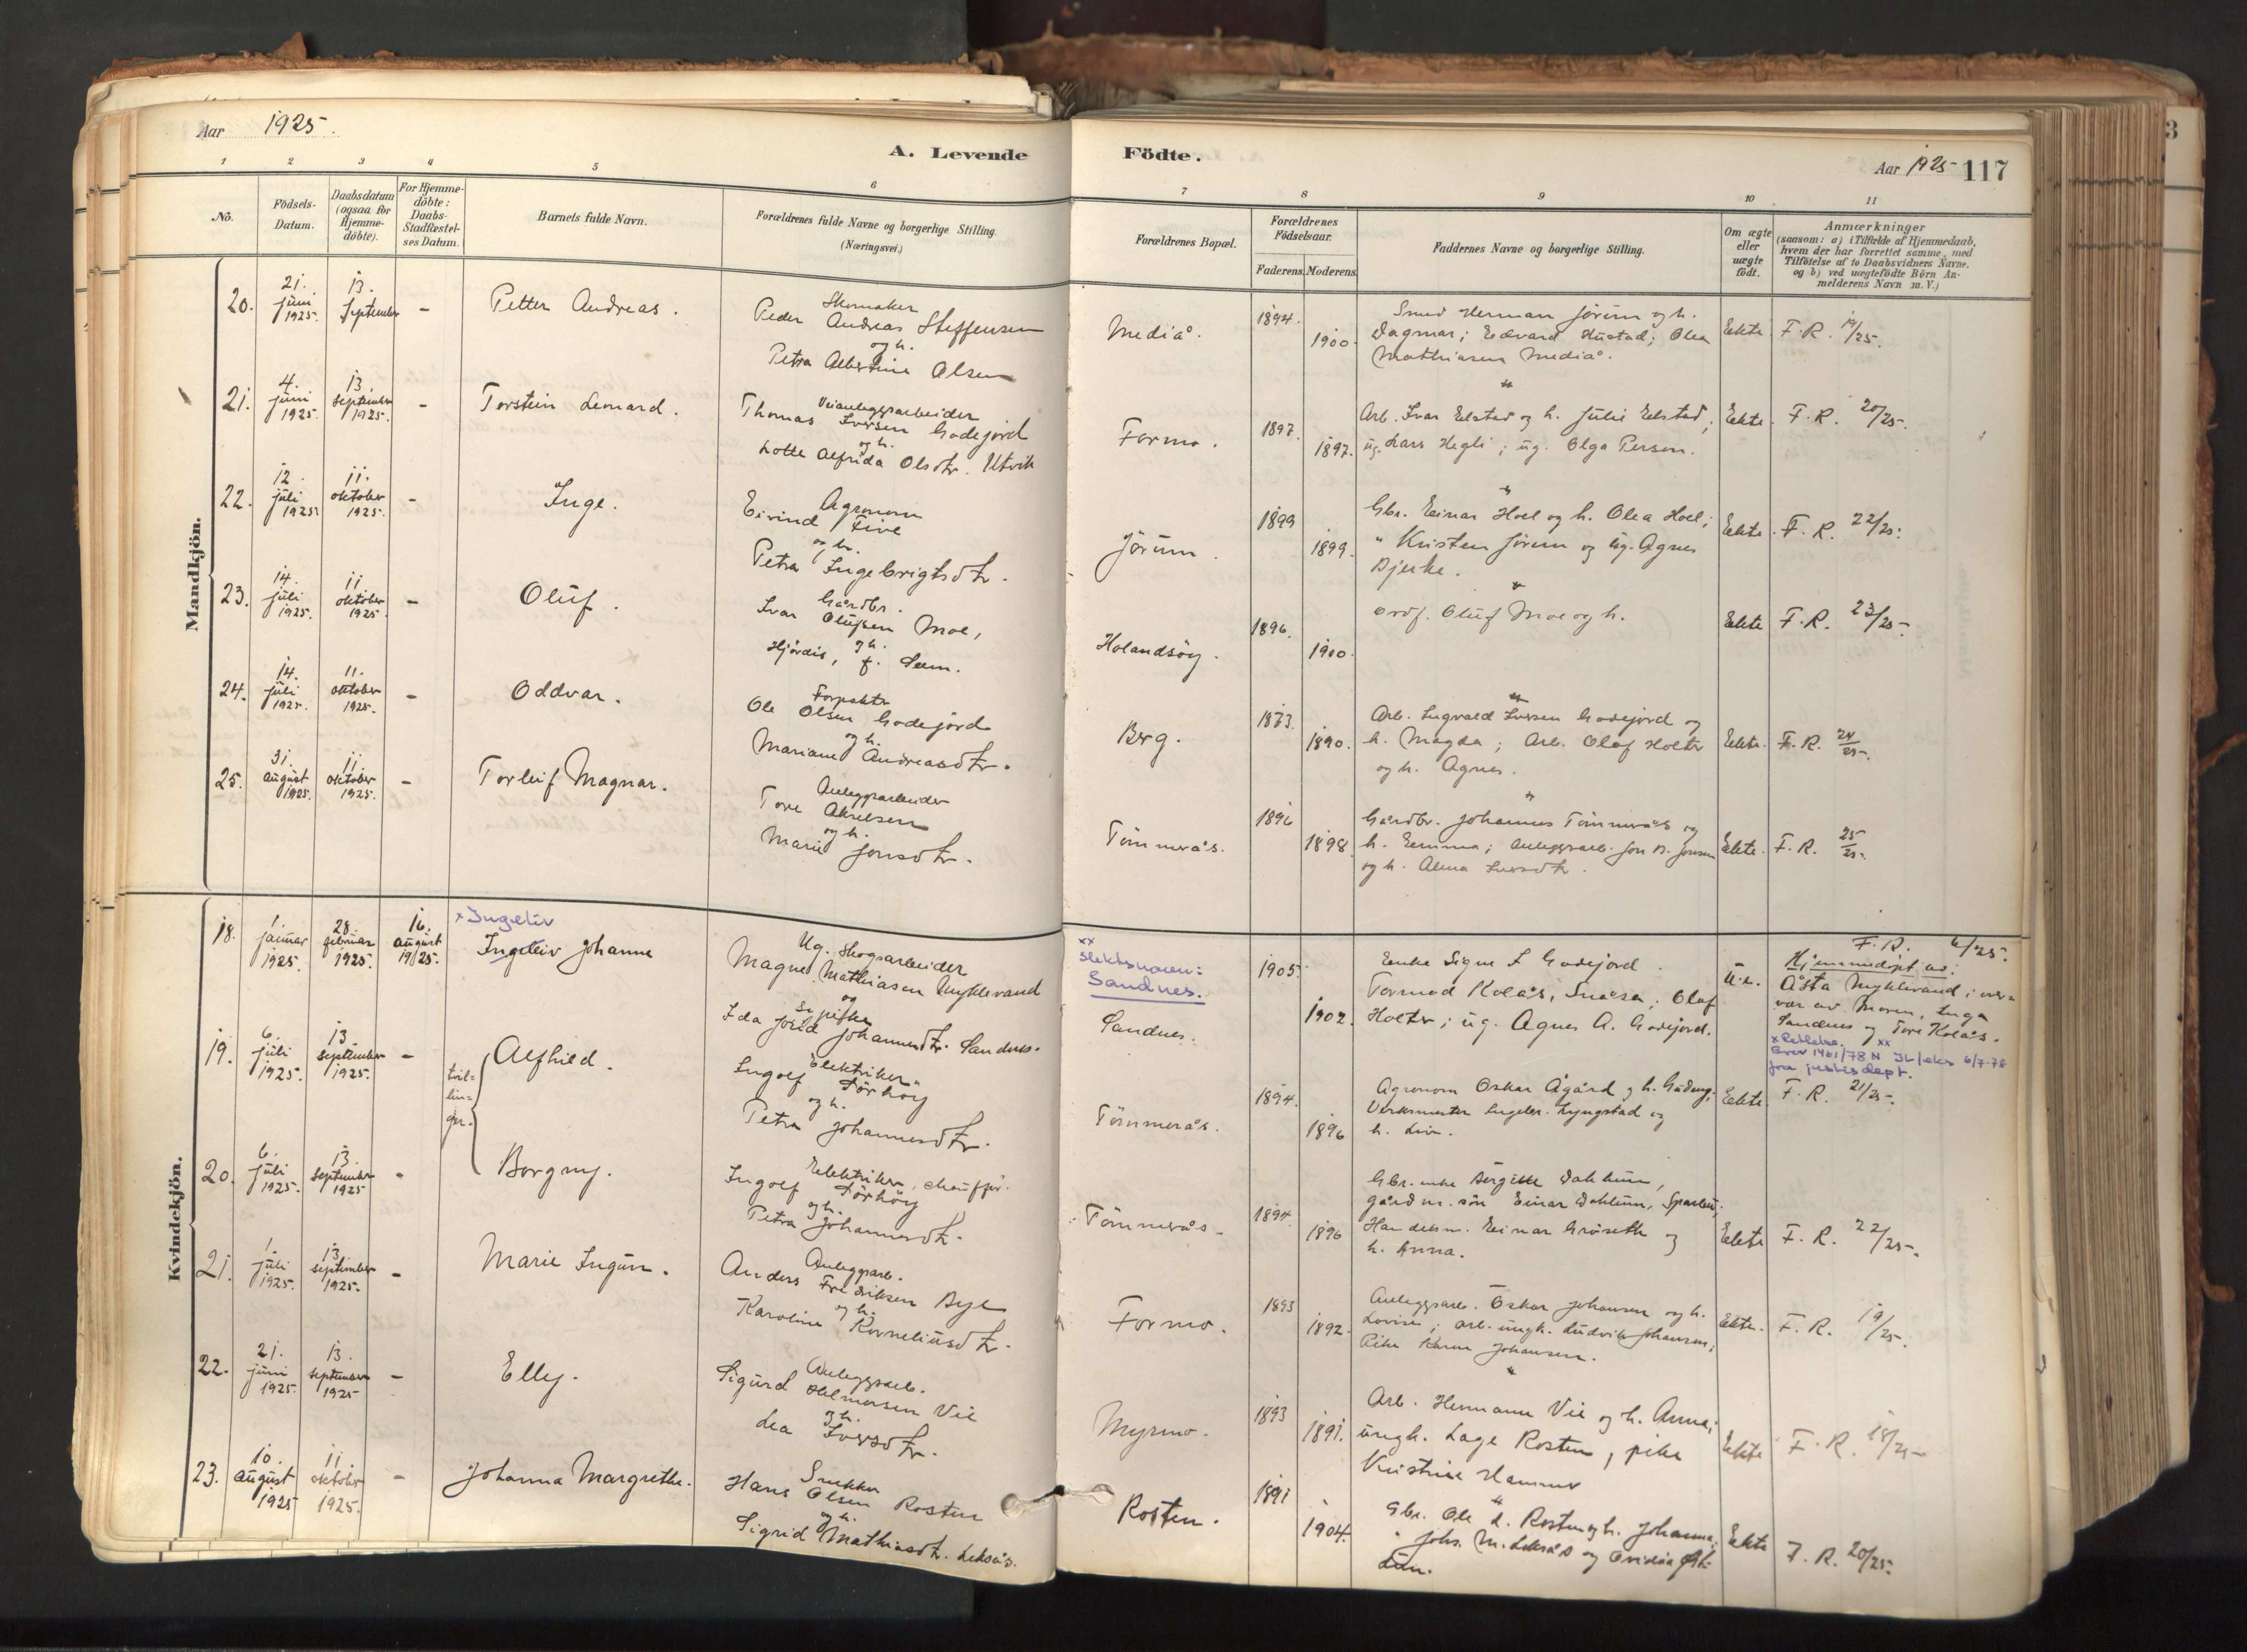 Aar 1925.
A. Levende
Födte.
Aar 1925 117
1 2 3 4 5 6
7 8 9 10 11
No.
Födsels-
Datum.
Daabsdatum
(ogsaa for
Hjemme-
döbte).
For Hjemme-
döbte:
Daabs-
Stadfæstel-
ses Datum.
Barnets fulde Navn.
Forældrenes fulde Navne og borgerlige Stilling.
(Næringsvei.)
Forældrenes Bopæl.
Forældrenes
Födselsaar.
Faderens. Moderens.
Faddernes Navne og borgerlige Stilling.
Om ægte
eller
uægte
födt.
Anmærkninger
(saasom: a) i Tilfælde af Hjemmedaab,
hvem der har forrettet samme, med
Tilföielse af to Daabsvidners Navne.
og b) ved uægtefödte Börn An-
melderens Navn m. V.)
Mandkjön.
20.
21.
juni
1925.
13.
September
-
Petter Andreas.
Skomaker
Peder Andreas Steffensen
og h.
Petra Albertine Olsen
Mediå.
1894.
1900.
Smed Herman Jörum og h.
Dagmar; Edvard Hustad; Olea
Mathiasen Mediå.
Ekte
F. R. 19/25.
21.
4.
juni
1925.
13.
september
1925.
-
Torstein Lenard.
Veianleggsarbeider
Thomas Iversen Godejord
og h.
Lotte Alfrida Olsdtr. Utvik
Formo.
1897.
1897.
Arb. Ivar Elstad og h. Julie Elstad;
ug. Lars Hegli; ug. Olga Person.
Ekte.
F. R. 20/25.
22.
12.
juli
1925.
11.
oktober
1925.
-
Inge.
Agronom
Eivind Five
og h.
Petra Ingebrigtsdtr.
Jörum.
1899
1899.
Gbr. Einar Hoel og h. Olea Hoel;
" Kristen Jörum og ug. Agnes
Bjerke.
Ekte.
F. R. 22/25.
23.
14.
juli
1925.
11.
oktober
1925.
-
Oluf.
Gårdbr.
Ivar Olufsen Moe,
og h.
Hjördis, f. Sem.
Holandsöy.
1896.
1900.
Ordf. Oluf Moe og h.
Ekte
F. R. 23/25.
24.
14.
juli
1925.
11.
oktober
1925.
-
Oddvar.
Forpakter
Ole Olsen Godejord
og h.
Mariane Andreasdtr.
Berg.
1873.
1890.
Arb. Ingvald Iversen Godejord og
h. Magda; Arb. Olaf Holter
og h. Agnes.
Ekte.
F. R. 24/25.
25.
31.
august
1925.
11.
oktober
1925.
-
Torleif Magnar.
Anleggsarbeider
Tore Akselsen
og h.
Marie Jonsdtr.
Tömmerås.
1896
1898.
Gårdbr. Johannes Tömmerås og
h. Emma; Anleggsarb. Jon B. Jonsen
og h. Alma Iversdtr.
Ekte.
F. R. 25/25.
Kvindekjön.
18.
1.
januar
1925.
28.
februar
1925.
16.
august
1925.
x Ingeliv
Ingeleiv Johanne
Ug. Skogsarbeider
Magne Mathiasen Nyklevand
og
pike
Ida Jorid Johannesdtr. Sandnes.
xx
slektsnavn:
Sandnes.
Sandnes.
1905.
1902.
Enke Signe L Godejord.
Tormod Kolås, Snåsa; Olaf
Holter; ug. Agnes A. Godejord.
U. e.
F. R. 6/25.
Hjemmedöpt av:
Åsta Nyklevand i over-
vær av Moren, Inga
Sandnes og Tore Kolås.
x Rettelse. xx
Brev 1461/78 N JL/eks 6/7-78
fra justisdept.
19.
6.
juli
1925.
13.
september
1925.
-
tvil-
lin-
ger.
Alfhild.
Elektriker
Ingolf Törhöy
og h.
Petra Johannesdtr.
Tömmerås.
1894.
1896
Agronom Oskar Ågård og h. Gudny;
Verksmester Ingebr. Lyngstad og
h. Liv.
Ekte.
F. R. 21/25.
20.
6.
juli
1925.
13.
september
1925
-
Borgny.
Elektriker, chauffør.
Ingolf Törhöy
og h.
Petra Johannesdtr.
Tömmerås.
1894.
1896
Gbr. enke Bergitte Dahlum,
gårdm. sön Einar Dahlum, Sparbu;
Handelsm. Einar Gröseth og
h. Anna.
Ekte
F. R. 22/25.
21.
1.
juli
1925.
13.
september
1925.
-
Marie Ingun.
Anleggsarb.
Anders Fredriksen Bye
og h.
Karoline Korneliusdtr.
Formo.
1893
1892.
Anleggsarb. Oskar Johansen og h.
Lovise; arb. ungk. Ludvik Johansen;
Pike Karen Johansen.
Ekte.
F. R. 19/25.
22.
21.
juni
1925.
13.
september
1925
-
Elly.
Anleggsarb.
Sigurd Helmersen Vie
og h.
Lea Iversdtr.
Myrmo.
1893
1891.
Arb. Hermann Vie og h. Anna;
ungk. Lage Rosten, pike
Kristine Hammer
Ekte
F. R. 18/25
23.
10.
august
1925
11.
oktober
1925.
-
Johanna Margrethe.
Snekker
Hans Olsen Rosten
og h.
Sigrid Mathiasdtr. Leksås.
Rosten.
1891
1904.
Gbr. Ole L. Rosten og h. Johanna,
" Johs. M. Leksås og Ovidia
Ekte
F. R. 20/25.